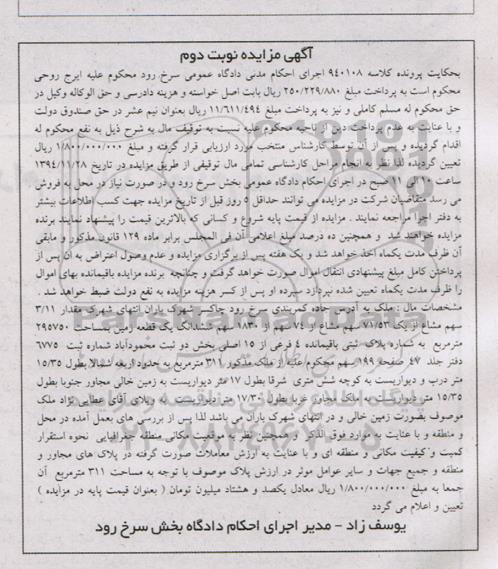 آگهی مزایده نوبت دوم
بحکایت پرونده کلاسه ۹۴۰۱۰۸ اجرای احکام مدنی دادگاه عمومی سرخ رود محکوم علیه ایرج روحی
محکوم است به پرداخت مبلغ ۲۵۰/۲۲۹/۸۸۰ ریال بابت اصل خواسته و هزینه دادرسی و حق الوکاله وکیل در
حق محکوم له مسلم کاملی و نیز به پرداخت مبلغ ۱۱/۶۱۱/۴۹۴ ریال بعنوان نیم عشر در حق صندوق دولت
و با عنایت به عدم پرداخت دین از ناحیه محکوم علیه نسبت به توقیف مال به شرح ذیل به نفع محکوم له
اقدام گردیده و پس از آن توسط کارشناس منتخب مورد ارزیابی قرار گرفته و مبلغ ۱/۸۰۰/۰۰۰/۰۰۰ ریال
تعیین گردیده لذا نظر به انجام مراحل کارشناسی تمامی مال توقیفی از طریق مزایده در تاریخ ۱۳۹۴/۱۱/۲۸
ساعت ۱۰ الی ۱۱ صبح در اجرای احکام دادگاه عمومی بخش سرخ رود و در صورت نیاز در محل به فروش
می رسد متقاضیان شرکت در مزایده می توانند حداقل ۵ روز قبل از تاریخ مزایده جهت کسب اطلاعات بیشتر
به دفتر اجرا مراجعه نمایند . مزایده از قیمت پایه شروع و کسانی که بالاترین قیمت را پیشنهاد نمایند برنده
مزایده خواهند شد و همچنین ده درصد مبلغ اعلامی آن فی المجلس برابر ماده ۱۲۹ قانون مذکور و مابقی
آن ظرف مدت یکماه اخذ خواهد شد و یک هفته پس از برگزاری مزایده و عدم وصول اعتراض به آن پس از
پرداختن کامل مبلغ پیشنهادی انتقال اموال صورت خواهد گرفت و چنانچه برنده مزایده باقیمانده بهای اموال
را ظرف مدت یکماه تعیین شده نپردازد سپرده او پس از کسر هزینه مزایده به نفع دولت ضبط خواهد شد .
مشخصات مال : ملک به آدرس جاده کمربندی سرخ رود چاکسر شهرک باران انتهای شهرک مقدار ۳/۱۱
سهم مشاع از یک ۷۱/۵۳ سهم مشاع از ۷۴ سهم از ۱۸۳۰ سهم ششدانگ یک قطعه زمین به مساحت ۲۹۵۷۵۰
مترمربع به شماره پلاک ثبتی باقیمانده ۴ فرعی از ۱۵ اصلی بخش دو ثبت محمودآباد شماره ثبت ۶۷۷۵
دفتر جلد ۴۷ صفحه ۱۹۹ سهم محکوم علیه از ملک مذکور ۳۱۱ مترمربع به حدود اربعه شمالا بطول ۱۵/۳۵
متر درب و دیواریست به کوچه شش متری شرقا بطول ۱۷ متر دیواریست به زمین خالی مجاور جنوبا بطول
۱۵/۳۵ متر دیواریست به ملک مجاور غربا بطول ۱۷/۳۰ متر دیواریست به ویلای آقای عطایی نژاد ملک
موصوف بصورت زمین خالی و در انتهای شهرک باران می باشد لذا پس از بررسی های بعمل آمده در محل
و منطقه و با عنایت به موارد فوق الذکر و همچنین نظر به موقعیت مکانی منطقه جغرافیایی نحوه استقرار
کمیت و کیفیت مکانی و منطقه ای و با عنایت به ارزش معاملات صورت گرفته در پلاک های مجاور و
منطقه و جمیع جهات و سایر عوامل موثر در ارزش پلاک موصوف با توجه به مساحت ۳۱۱ مترمربع آن
جمعا به مبلغ ۱/۸۰۰/۰۰۰/۰۰۰ ریال معادل یکصد و هشتاد میلیون تومان ( بعنوان قیمت پایه در مزایده )
تعیین و اعلام می گردد
یوسف زاد - مدیر اجرای احکام دادگاه بخش سرخ رود